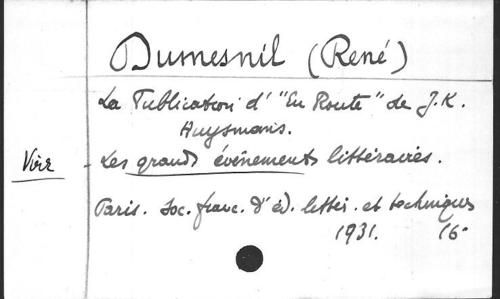 Dumesnil (René)
La Publication d' "En Route" de J.K.
Huysmans.
Voir - Les grands événements littéraires.
Paris. Soc. franc. d'éd. littér. et techniques
1931. 16°